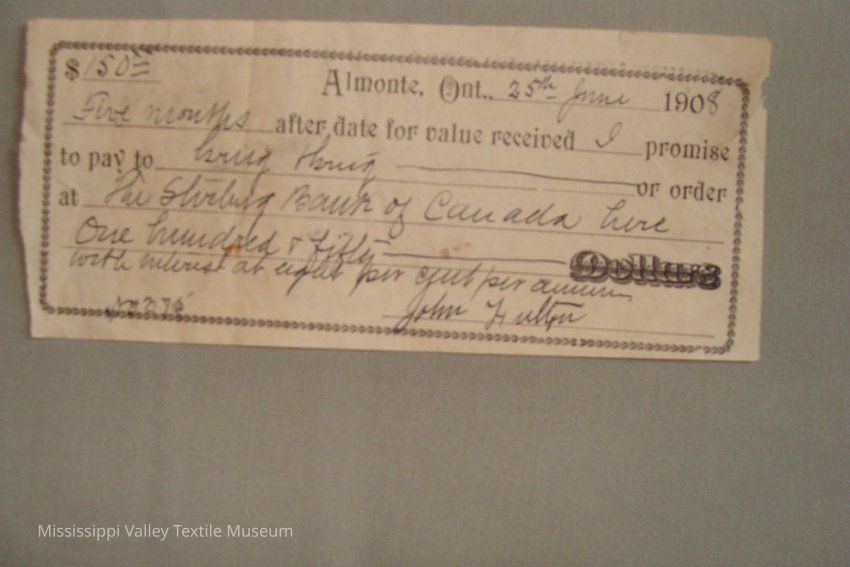 $150=
Almonte, Ont., 25th June 1908
Five months after date for value received I promise
to pay to or order
at The Bank of Canada here
One hundred & fifty Dollars
with interest at eight per cent per annum
John Fulton
Mississippi Valley Textile Museum